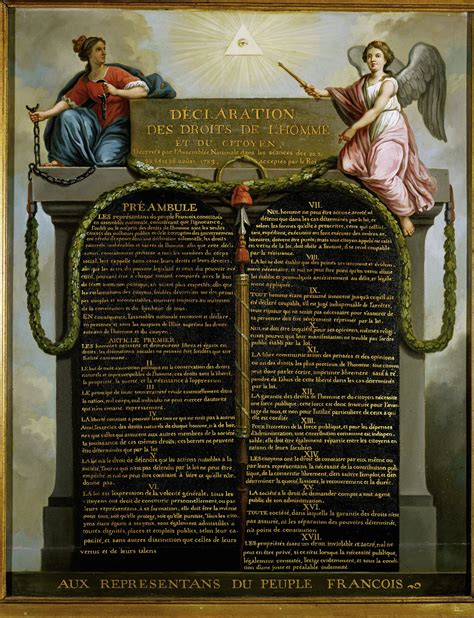 DÉCLARATION
DES DROITS DE L'HOMME
ET DU CITOYEN,
Décrétés par l'Assemblée Nationale dans les séances des 20, 21,
acceptés par le Roi
PRÉAMBULE
LES représentans du peuple Francois, constitués
en assemblée nationale, considérant que l'ignorance,
l'oubli ou le mépris des droits de l'homme sont les seules
causes des malheurs publics et de la corruption des gouvernemens
ont résolu d'exposer dans une déclaration solemnelle, les droits
naturels, inaliénables et sacrés de l'homme; afin que cette décla-
ration, constamment présente à tous les membres du corps
social, leur rappelle sans cesse leurs droits et leurs devoirs;
afin que les actes du pouvoir législatif et ceux du pouvoir exé-
cutif, pouvant être à chaque instant comparés avec le but
de toute institution politique, en soient plus respectés; afin que
les réclamations des citoyens, fondées désormais sur des princi-
pes simples et incontestables, tournent toujours au maintien
de la constitution et du bonheur de tous.
EN conséquence, l'assemblée nationale reconnoit et déclare,
en présence et sous les auspices de l'Etre suprême les droits
suivans de l'homme et du citoyen.
ARTICLE PREMIER
LES hommes naissent et demeurent libres et égaux en
droits, les distinctions sociales ne peuvent être fondées que sur
l'utilité commune.
II.
LE but de toute association politique est la conservation des
droits naturels et imprescriptibles de l'homme; ces droits sont
la liberté, la propriété, la sureté, et la résistance à l'oppression.
III.
LE principe de toute souveraineté réside essentiellement dans
la nation, nul corps, nul individu ne peut exercer d'autorité
qui n'en émane expressement.
IV.
LA liberté consiste à pouvoir faire tout ce qui ne nuit pas à autrui
Ainsi, l'exercice des droits naturels de chaque homme, n'a de bor-
nes que celles qui assurent aux autres membres de la société
la jouissance de ces mêmes droits; ces bornes ne peuvent
être déterminées que par la loi
V.
LA loi n'a le droit de défendre que les actions nuisibles à la
société. Tout ce qui n'est pas défendu par la loi ne peut être
empêché, et nul ne peut être contraint à faire ce qu'elle n'or-
donne pas.
VI.
LA loi est l'expression de la volonté générale; tous les
citoyens ont droit de concourir personnellement, ou par
leurs représentans, à sa formation; elle doit être la même
pour tous, soit qu'elle protege, soit qu'elle punisse. Tous les citoy-
ens étant égaux à ses yeux, sont également admissibles à
toutes dignités, places et emplois publics, selon leur ca-
pacité, et sans autres distinction que celles de leurs
vertus et de leurs talens
VII.
NUL homme ne peut être accusé, arreté ni
détenu que dans les cas déterminés par la loi, et
selon les formes qu'elle a prescrites, ceux qui sollici-
tent, expédient, exécutent ou font exécuter des ordres ar-
bitraires, doivent être punis; mais tout citoyen appelé ou saisi
en vertu de la loi, doit obéir à l'instant, il se rend coupable
par la résistance.
VIII.
LA loi ne doit établir que des peines strictement et évidem-
ment nécessaires, et nul ne peut être puni qu'en vertu d'une loi
établie et promulguée antérieurement au délit, et légalement
appliquée.
IX.
TOUT homme étant présumé innocent jusqu'à ce qu'il ait
été déclaré coupable, s'il est jugé indispensable de l'arrêter,
toute rigueur qui ne serait pas nécessaire pour s'assurer de
sa personne doit être sévèrement réprimée par la loi.
X.
NUL ne doit être inquiété pour ses opinions, mêmes religi-
euses pourvu que leur manifestation ne trouble pas l'ordre
public établi par la loi.
XI.
LA libre communication des pensées et des opinions
est un des droits les plus précieux de l'homme; tout citoyen
peut donc parler, écrire, imprimer librement; sauf à ré-
pondre de l'abus de cette liberté dans les cas déterminés
par la loi.
XII.
LA garantie des droits de l'homme et du citoyen nécessite
une force publique; cette force est donc instituée pour l'avan-
tage de tous, et non pour l'utilité particuliere de ceux à qui
elle est confiée.
XIII.
POUR l'entretien de la force publique, et pour les dépenses
d'administration, une contribution commune est indispen-
sable; elle doit être également répartie entre les citoyens
en raison de leurs facultés.
XIV.
LES citoyens ont le droit de constater par eux même ou
par leurs représentans, la nécessité de la contribution pub-
lique, de la consentir librement, d'en suivre l'emploi, et d'en
déterminer la quotité, l'assiette, le recouvrement et la durée.
XV.
LA société a le droit de demander compte à tout agent
public de son administration.
XVI.
TOUTE société, dans laquelle la garantie des droits n'est
pas assurée, ni la séparation des pouvoirs déterminée,
n'a point de constitution.
XVII.
LES propriétés étant un droit inviolable et sacré, nul ne
peut en être privé, si ce n'est lorsque la nécessité publique,
légalement constatée, l'exige évidemment, et sous la condi-
tion d'une juste et préalable indemnité.
AUX REPRESENTANS DU PEUPLE FRANCOIS